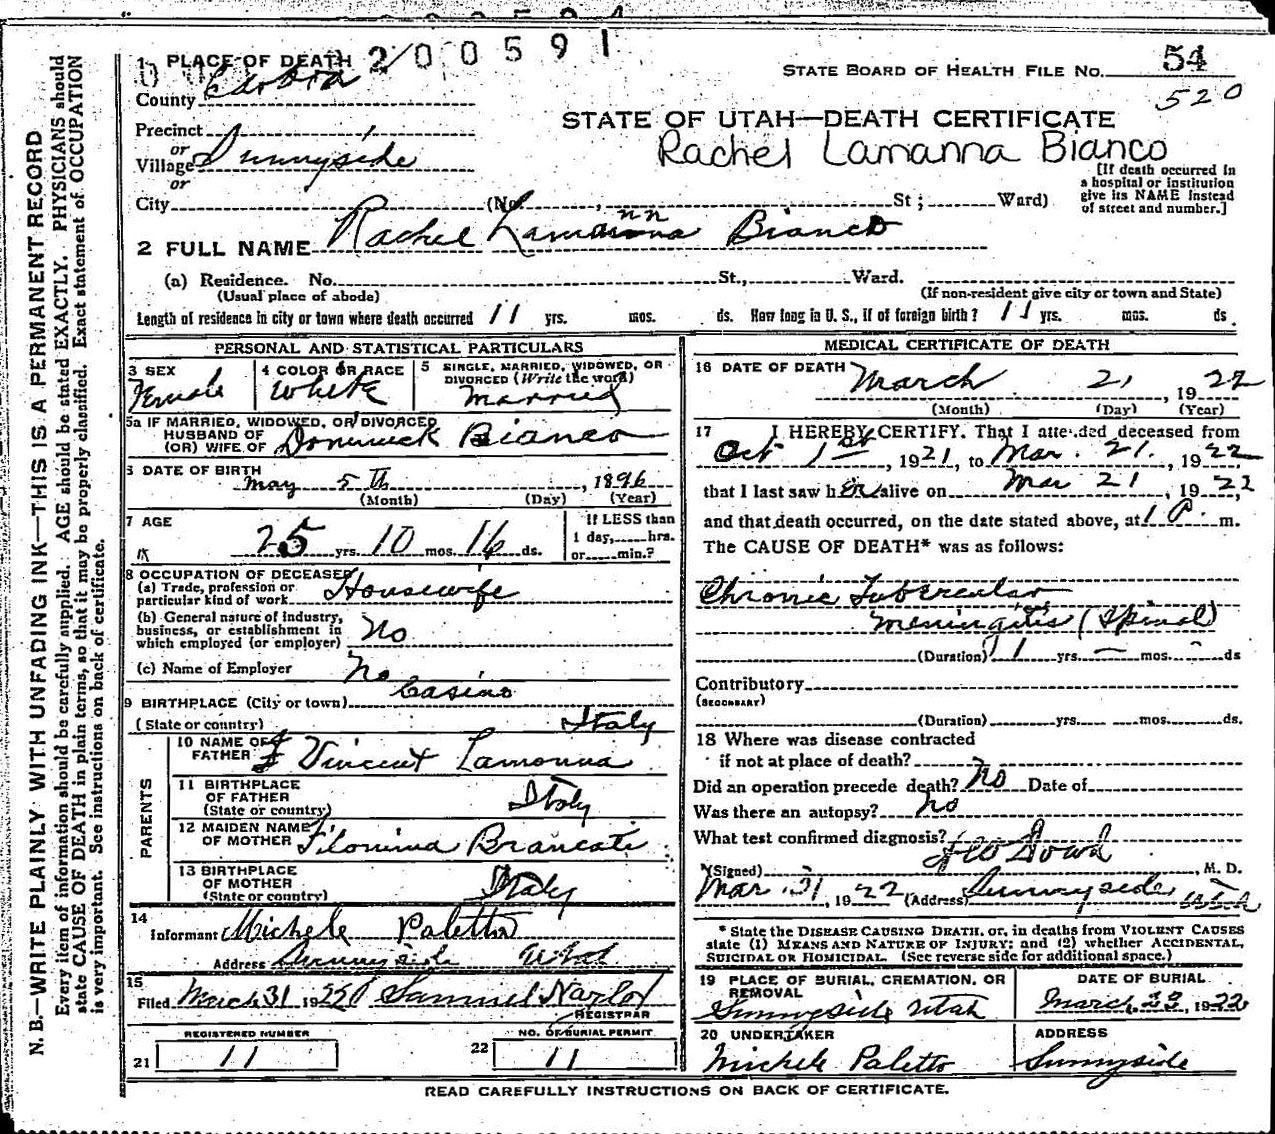 200591
1 PLACE OF DEATH
STATE BOARD OF HEALTH FILE No. 54
County Carbon
520
STATE OF UTAH—DEATH CERTIFICATE
Rachel Lamanna Bianco
Precinct
or
Village Sunnyside
or
City (No. St; Ward)
[If death occurred in
a hospital or institution
give its NAME instead
of street and number.]
2 FULL NAME Rachel Lamanna Bianco
nn
(a) Residence. No. St., Ward.
(Usual place of abode) (If non-resident give city or town and State)
Length of residence in city or town where death occurred 11 yrs. mos. ds. How long in U. S., if of foreign birth? 11 yrs. mos. ds.
PERSONAL AND STATISTICAL PARTICULARS
3 SEX
Female
4 COLOR OR RACE
White
5 SINGLE, MARRIED, WIDOWED, OR
DIVORCED (Write the word)
Married
5a IF MARRIED, WIDOWED, OR DIVORCED
HUSBAND OF
(OR) WIFE OF Dominick Bianco
6 DATE OF BIRTH
May 5th, 1896
(Month) (Day) (Year)
7 AGE
25 yrs. 10 mos. 16 ds.
If LESS than
1 day, hrs.
or min.?
8 OCCUPATION OF DECEASED
(a) Trade, profession or
particular kind of work Housewife
(b) General nature of industry,
business, or establishment in
which employed (or employer) No
(c) Name of Employer No
9 BIRTHPLACE (City or town) Casino
(State or country) Italy
PARENTS
10 NAME OF
FATHER Vincent Lamonna
11 BIRTHPLACE
OF FATHER
(State or country) Italy
12 MAIDEN NAME
OF MOTHER Filomina Brancati
13 BIRTHPLACE
OF MOTHER
(State or country) Italy
14
Informant Michele Paletto
Address Sunnyside Utah
15
Filed March 31 1922 Samuel
REGISTRAR
REGISTERED NUMBER
21 11
NO. OF BURIAL PERMIT
22 11
MEDICAL CERTIFICATE OF DEATH
16 DATE OF DEATH
March 21, 1922
(Month) (Day) (Year)
17 I HEREBY CERTIFY, That I attended deceased from
Oct 1st, 1921, to Mar. 21, 1922
that I last saw her alive on Mar 21, 1922,
and that death occurred, on the date stated above, at 1 P. m.
The CAUSE OF DEATH* was as follows:
Chronic Tubercular
meningitis (Spinal)
(Duration) 1 yrs. – mos. – ds
Contributory
(SECONDARY)
(Duration) yrs. mos. ds.
18 Where was disease contracted
if not at place of death?
Did an operation precede death? No Date of
Was there an autopsy? No
What test confirmed diagnosis?
(Signed) Dowd, M. D.
Mar. 31, 1922 (Address) Sunnyside Utah
* State the DISEASE CAUSING DEATH, or, in deaths from VIOLENT CAUSES
state (1) MEANS AND NATURE OF INJURY; and (2) whether ACCIDENTAL,
SUICIDAL OR HOMICIDAL. (See reverse side for additional space.)
19 PLACE OF BURIAL, CREMATION, OR
REMOVAL
Sunnyside Utah
DATE OF BURIAL
March 23, 1922
20 UNDERTAKER
Michele Paletto
ADDRESS
Sunnyside
READ CAREFULLY INSTRUCTIONS ON BACK OF CERTIFICATE.
N. B.—WRITE PLAINLY WITH UNFADING INK—THIS IS A PERMANENT RECORD
Every item of information should be carefully supplied. AGE should be stated EXACTLY. PHYSICIANS should
state CAUSE OF DEATH in plain terms, so that it may be properly classified. Exact statement of OCCUPATION
is very important. See instructions on back of certificate.